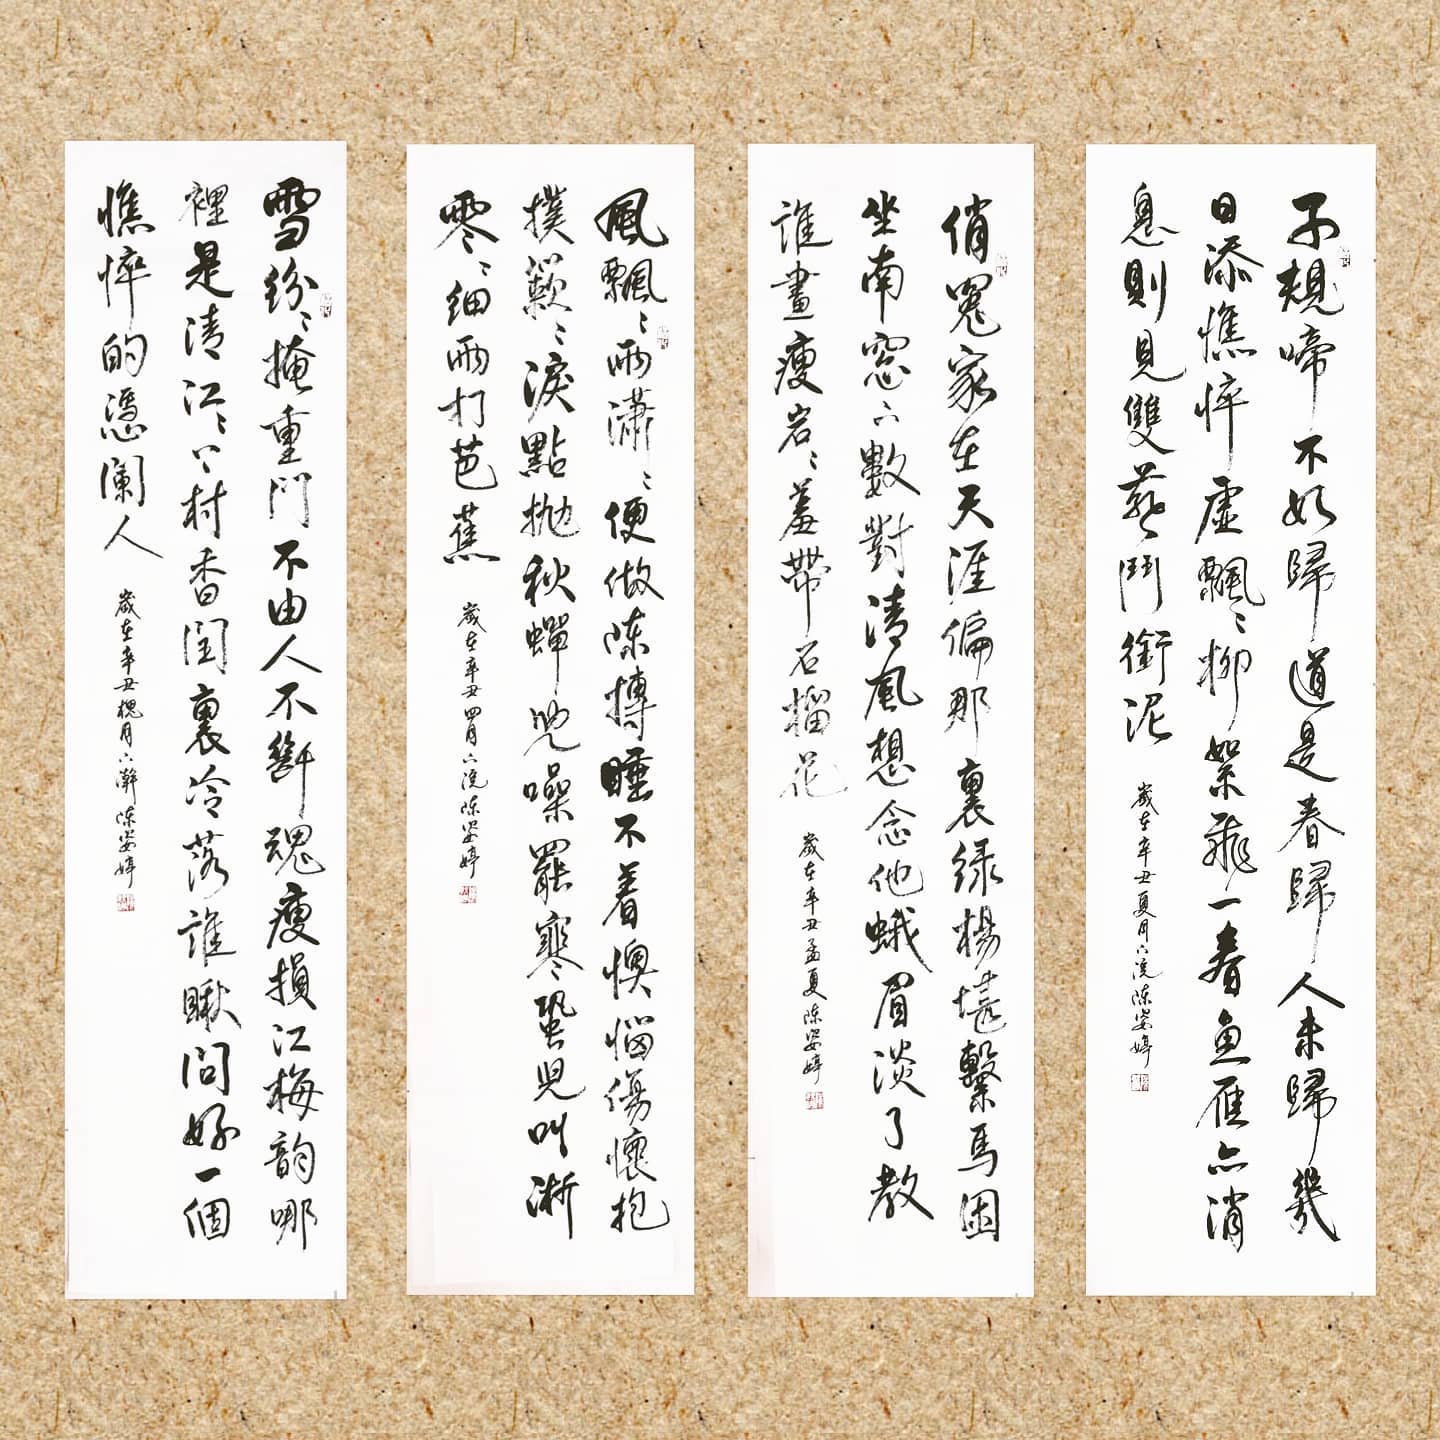 子規啼不如歸道是春歸人未歸幾
日添憔悴虛飄〻柳絮飛一春魚雁消
息則見雙燕鬥銜泥
歲在辛丑夏月下浣陳姿婷
俏冤家在天涯偏那裏綠楊堪繫馬困
坐南窓下數對清風想念他蛾眉淡了教
誰畫瘦岩〻羞帶石榴花
歲在辛丑孟夏陳姿婷
風飄〻雨瀟〻便做陳摶睡不着懊惱傷懷抱
撲簌〻淚點拋秋蟬兒噪罷寒蛩兒叫淅
零〻細雨打芭蕉
歲在辛丑四月下浣陳姿婷
雪紛〻掩重門不由人不斷魂瘦損江梅韻哪
裡是清江〻上村香閨裏冷落誰瞅問好一個
憔悴的憑闌人
歲在辛丑槐月下澣陳姿婷